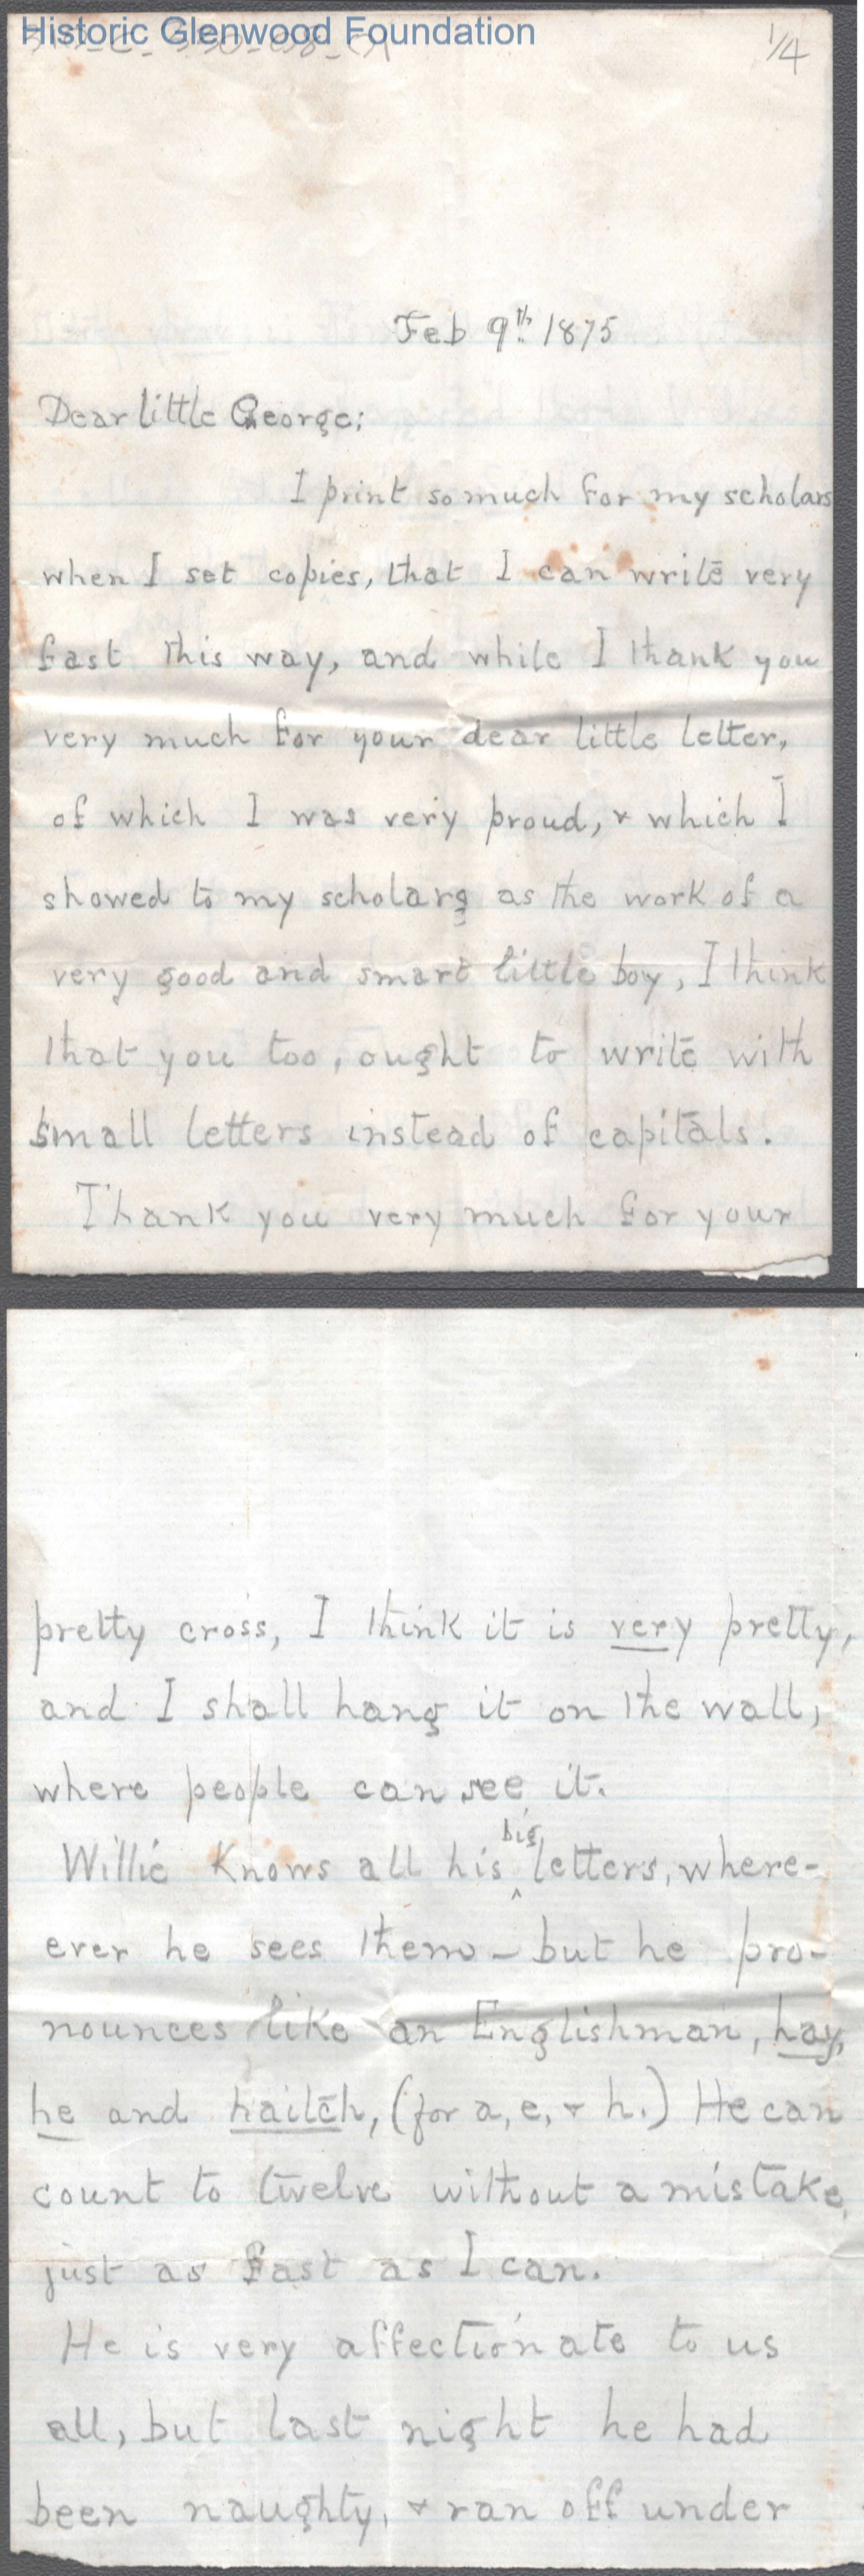 Historic Glenwood Foundation
1/4
Feb 9th 1875
Dear little George;
I print so much for my scholars
when I set copies, that I can write very
fast this way, and while I thank you
very much for your dear little letter,
of which I was very proud, & which I
showed to my scholars as the work of a
very good and smart little boy, I think
that you too, ought to write with
small letters instead of capitals.
Thank you very much for your
pretty cross, I think it is very pretty,
and I shall hang it on the wall,
where people can see it.
Willie Knows all his big letters, where-
ever he sees them - but he pro-
nounces like an Englishman, hay,
he and haitch, (for a, e, & h.) He can
count to twelve without a mistake,
just as fast as I can.
He is very affectionate to us
all, but last night he had
been naughty, & ran off under